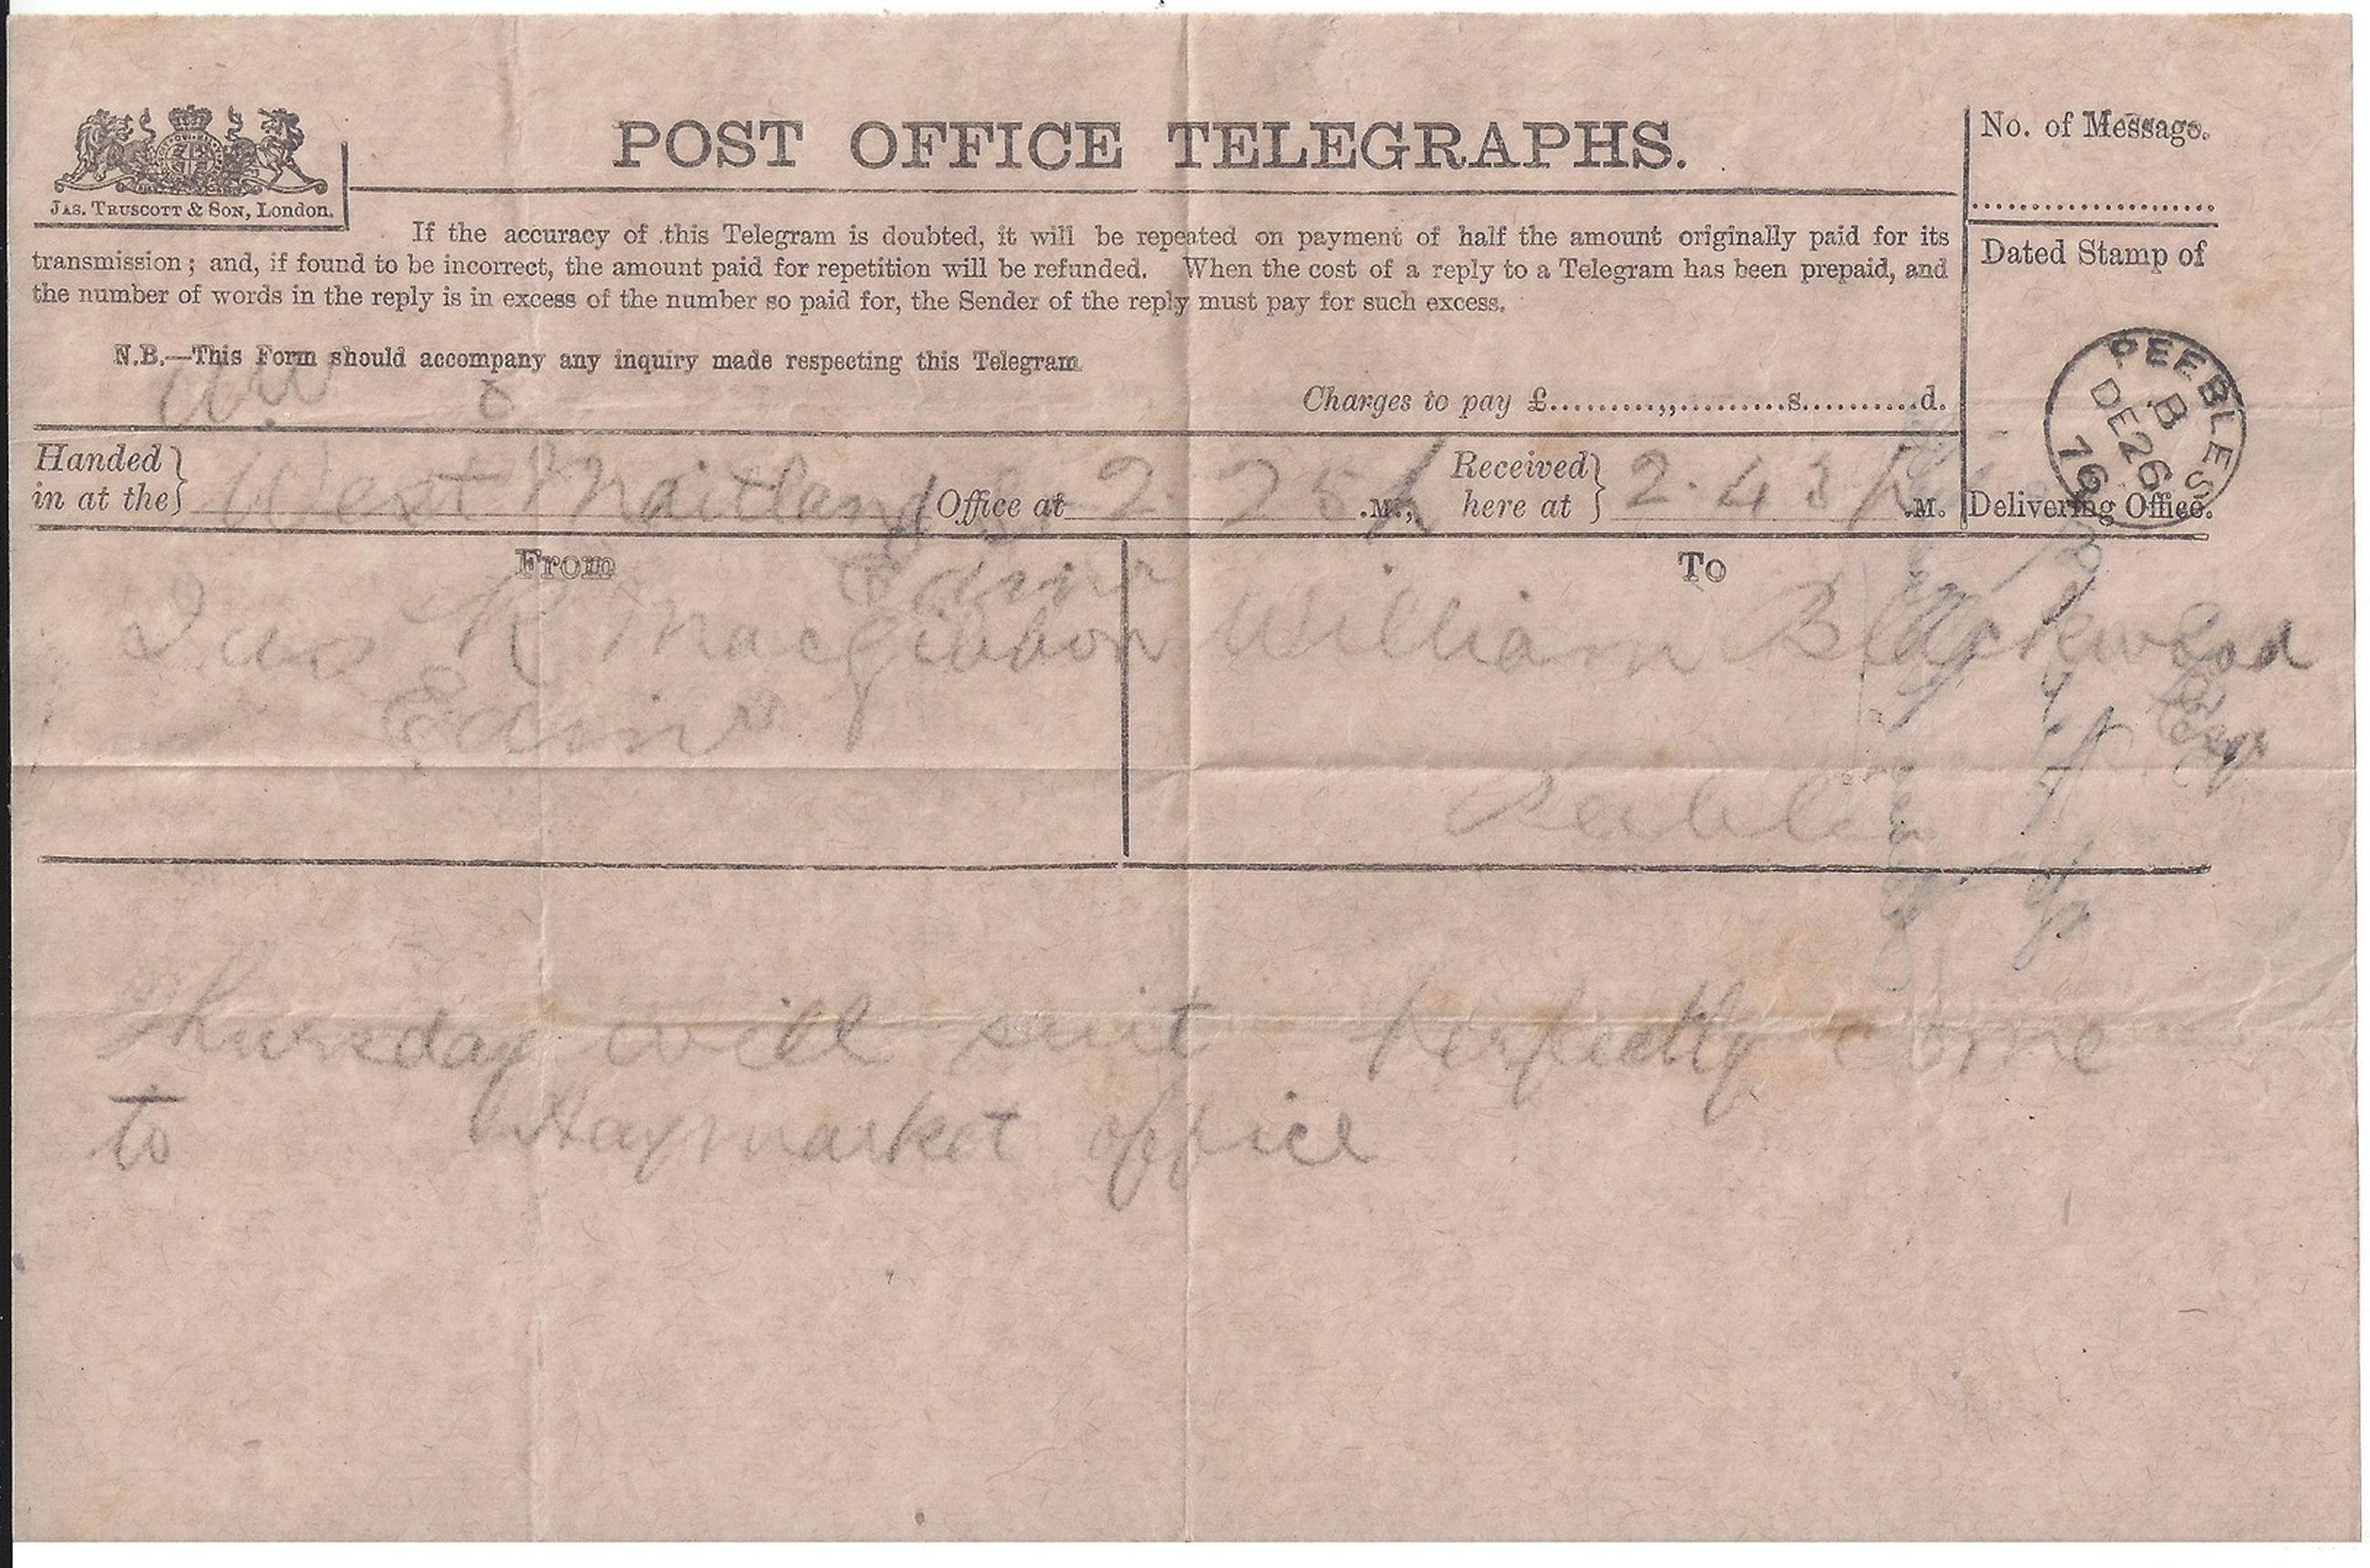 POST OFFICE TELEGRAPHS.
No. of Message.
JAS. TRUSCOTT & SON, London.
Dated Stamp of
If the accuracy of this Telegram is doubted, it will be repeated on payment of half the amount originally paid for its
transmission; and, if found to be incorrect, the amount paid for repetition will be refunded. When the cost of a reply to a Telegram has been prepaid, and
the number of words in the reply is in excess of the number so paid for, the Sender of the reply must pay for such excess.
N.B.—This Form should accompany any inquiry made respecting this Telegram.
PEEBLES
B
DE 26
76
Charges to pay £..........,,.........s..........d.
Handed in at the } West Maitland St Office at 2.25 .M.,
Edinr
Received here at } 2.43 .M.
Delivering Office.
From
Jas R MacGibbon
Edinr
To
William Blackwood
Esqr
Peebles
Thursday will suit perfectly come
to Haymarket office